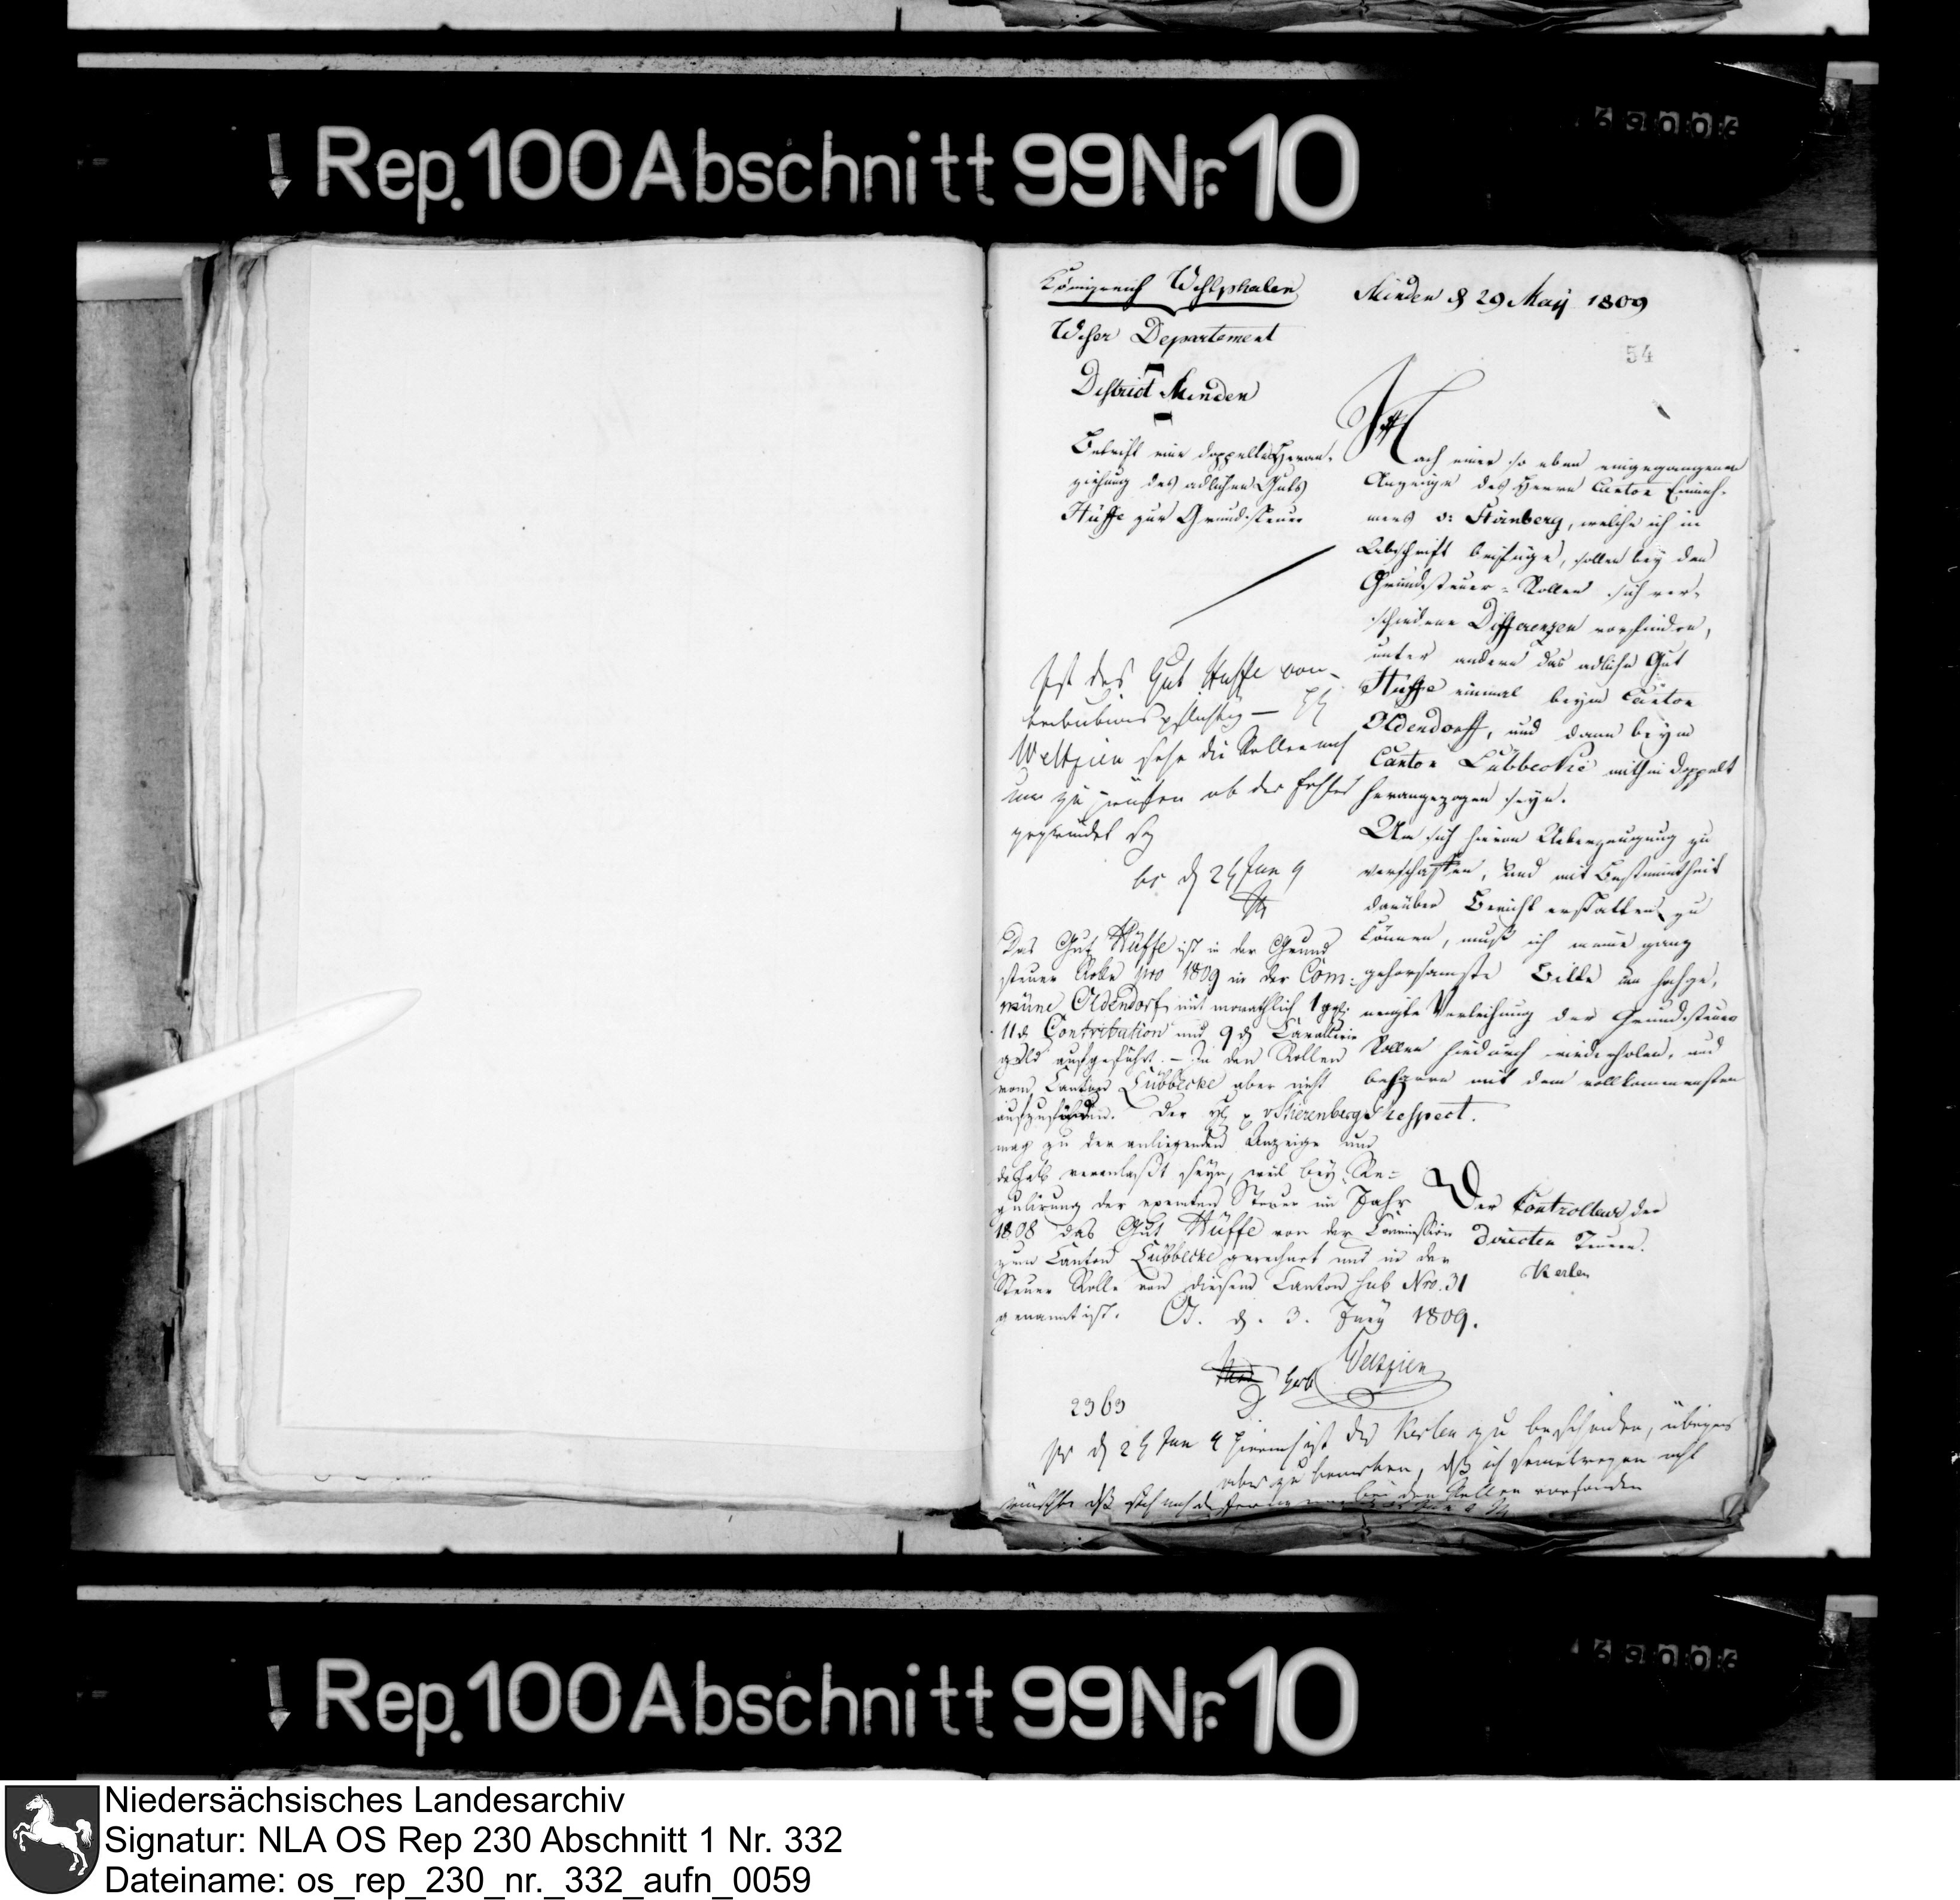 Rep. 100 Abschnitt 99 Nr. 10
Königreich Westphalen
Weser Departement
District Minden
Minden d 29 May 1809
54
Betrift eine doppelte Heran-
ziehung des adlichen Guts
Hüffe zur Grundsteuer
Nach einer so eben eingegangenen
Anzeige des Herrn Canton Einneh-
mers v: , welche ich in
Abschrift beyfüge, sollen bey den
Grundsteuer-Rollen sich ver-
schiedene Differenzen vorfinden,
unter andern das adliche Gut
Hüffe einmal beym Canton
Oldendorff, und dann beym
Canton Lübbecke mithin doppelt
herangezogen seyn.
Um sich hievon Ueberzeugung zu
verschaffen, und mit Bestimmtheit
darüber Bericht erstatten zu
können, muß ich meine ganz
gehorsamste Bitte um hochge-
neigte Verleihung der Grundsteuer
Rollen hiedurch wiederholen, und
beharre mit dem vollkommensten
Respect.
Der Controlleur der
directen Steuern.
Kerlen
Ist das Gut Hüffe con-
tributionspflichtig —
Weltzien sehe die Rollen nach
um zu prüfen ob der Fehler
gegründet sey
d 2t Jun 9
Das Gut Hüffe ist in der Grund
steuer Rolle pro 1809 in der Com-
mune Oldendorf mit monathlich 1 ggr
11 d Contribution und 9 d Cavallerie
geld aufgeführt. – In den Rollen
vom Canton Lübbecke aber nicht
aufzufinden. Der v Stierenberg
mag zu der anliegenden Anzeige nur
deshalb veranlaßt seyn, weil bey Re-
gulirung der exemten Steuer im Jahr
1808 das Gut Hüffe von der Commission
zum Canton Lübbecke gerechnet und in der
Steuer Rolle von diesem Canton sub Nro. 31
genannt ist. O. d. 3. Juny 1809.
Weltzien
2363
d 2t Jun 9 hiernach ist der Kerlen zu bescheiden, übrigens
aber zu bemerken, dß ich
wünschte dß sich bei den Rollen vorfanden
Rep. 100 Abschnitt 99 Nr. 10
Niedersächsisches Landesarchiv
Signatur: NLA OS Rep 230 Abschnitt 1 Nr. 332
Dateiname: os_rep_230_nr._332_aufn_0059